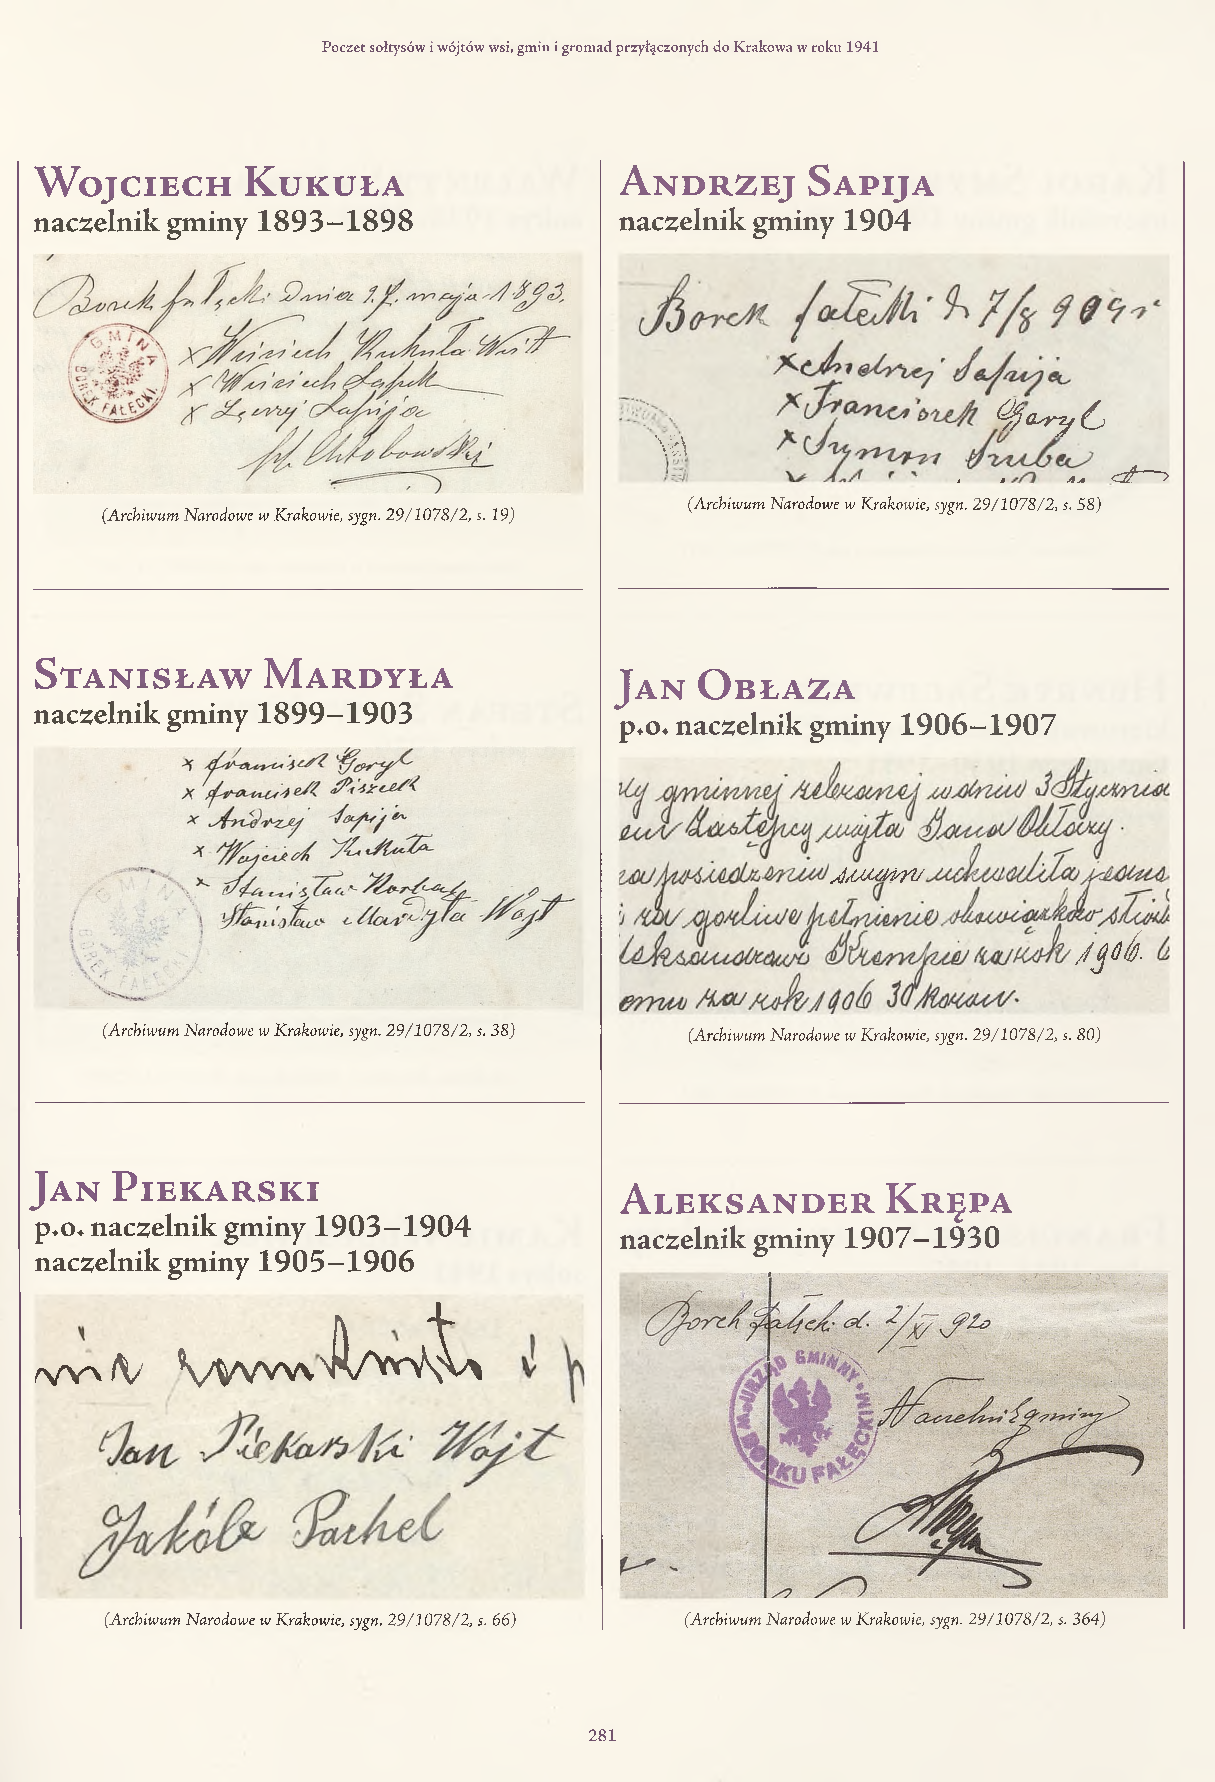 Poczet sołtysów i wójtów wsi, gmin i gromad przyłączonych do Krakowa w roku 1941
Wojciech Kukuła
naczelnik gminy 1893–1898
Borek fałęcki Dnia maja 1893.
GMINA
BOREK FAŁĘCKI
x Wojciech Kukuła Wójt
x Wojciech
x Sapija
Chłobowski
(Archiwum Narodowe w Krakowie, sygn. 29/1078/2, s. 19)
Stanisław Mardyła
naczelnik gminy 1899–1903
x francisek Goryl
x francisek Piszcek
x Andrzej Sapija
x Wojciech Kukuła
x Stanisław
Stanisław Mardyła Wójt
GMINA
BOREK FAŁĘCKI
(Archiwum Narodowe w Krakowie, sygn. 29/1078/2, s. 38)
Jan Piekarski
p.o. naczelnik gminy 1903–1904
naczelnik gminy 1905–1906
nie zamknięto i p
Jan Piekarski Wójt
Jakób Pachel
(Archiwum Narodowe w Krakowie, sygn. 29/1078/2, s. 66)
Andrzej Sapija
naczelnik gminy 1904
Borek fałecki 7/8 904 r
x Andrzej Sapija
x Franciszek Garyl
x Szymon Sruba
(Archiwum Narodowe w Krakowie, sygn. 29/1078/2, s. 58)
Jan Obłaza
p.o. naczelnik gminy 1906–1907
dy gminnej zebranej w dniu 3 Stycznia
em Zastępcy wójta Jana Obłazy.
na posiedzeniu swym uchwaliła jedno
i za gorliwe pełnienie obowiązków
leksandrowi Krempie za rok 1906.
emu za rok 1906 30 koron.
(Archiwum Narodowe w Krakowie, sygn. 29/1078/2, s. 80)
Aleksander Krępa
naczelnik gminy 1907–1930
Borek Fałęcki d. 2/XI 920
URZĄD GMINNY
W BORKU FAŁĘCKIM
Naczelnik gminy
(Archiwum Narodowe w Krakowie, sygn. 29/1078/2, s. 364)
281